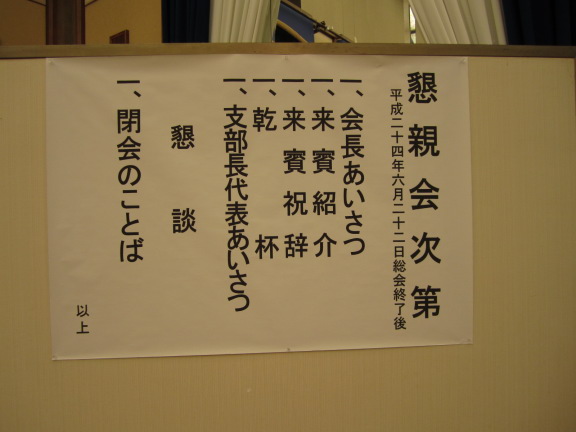 懇親会次第
平成二十四年六月二十二日総会終了後
一、会長あいさつ
一、来賓紹介
一、来賓祝辞
一、乾杯
一、支部長代表あいさつ
懇談
一、閉会のことば
以上